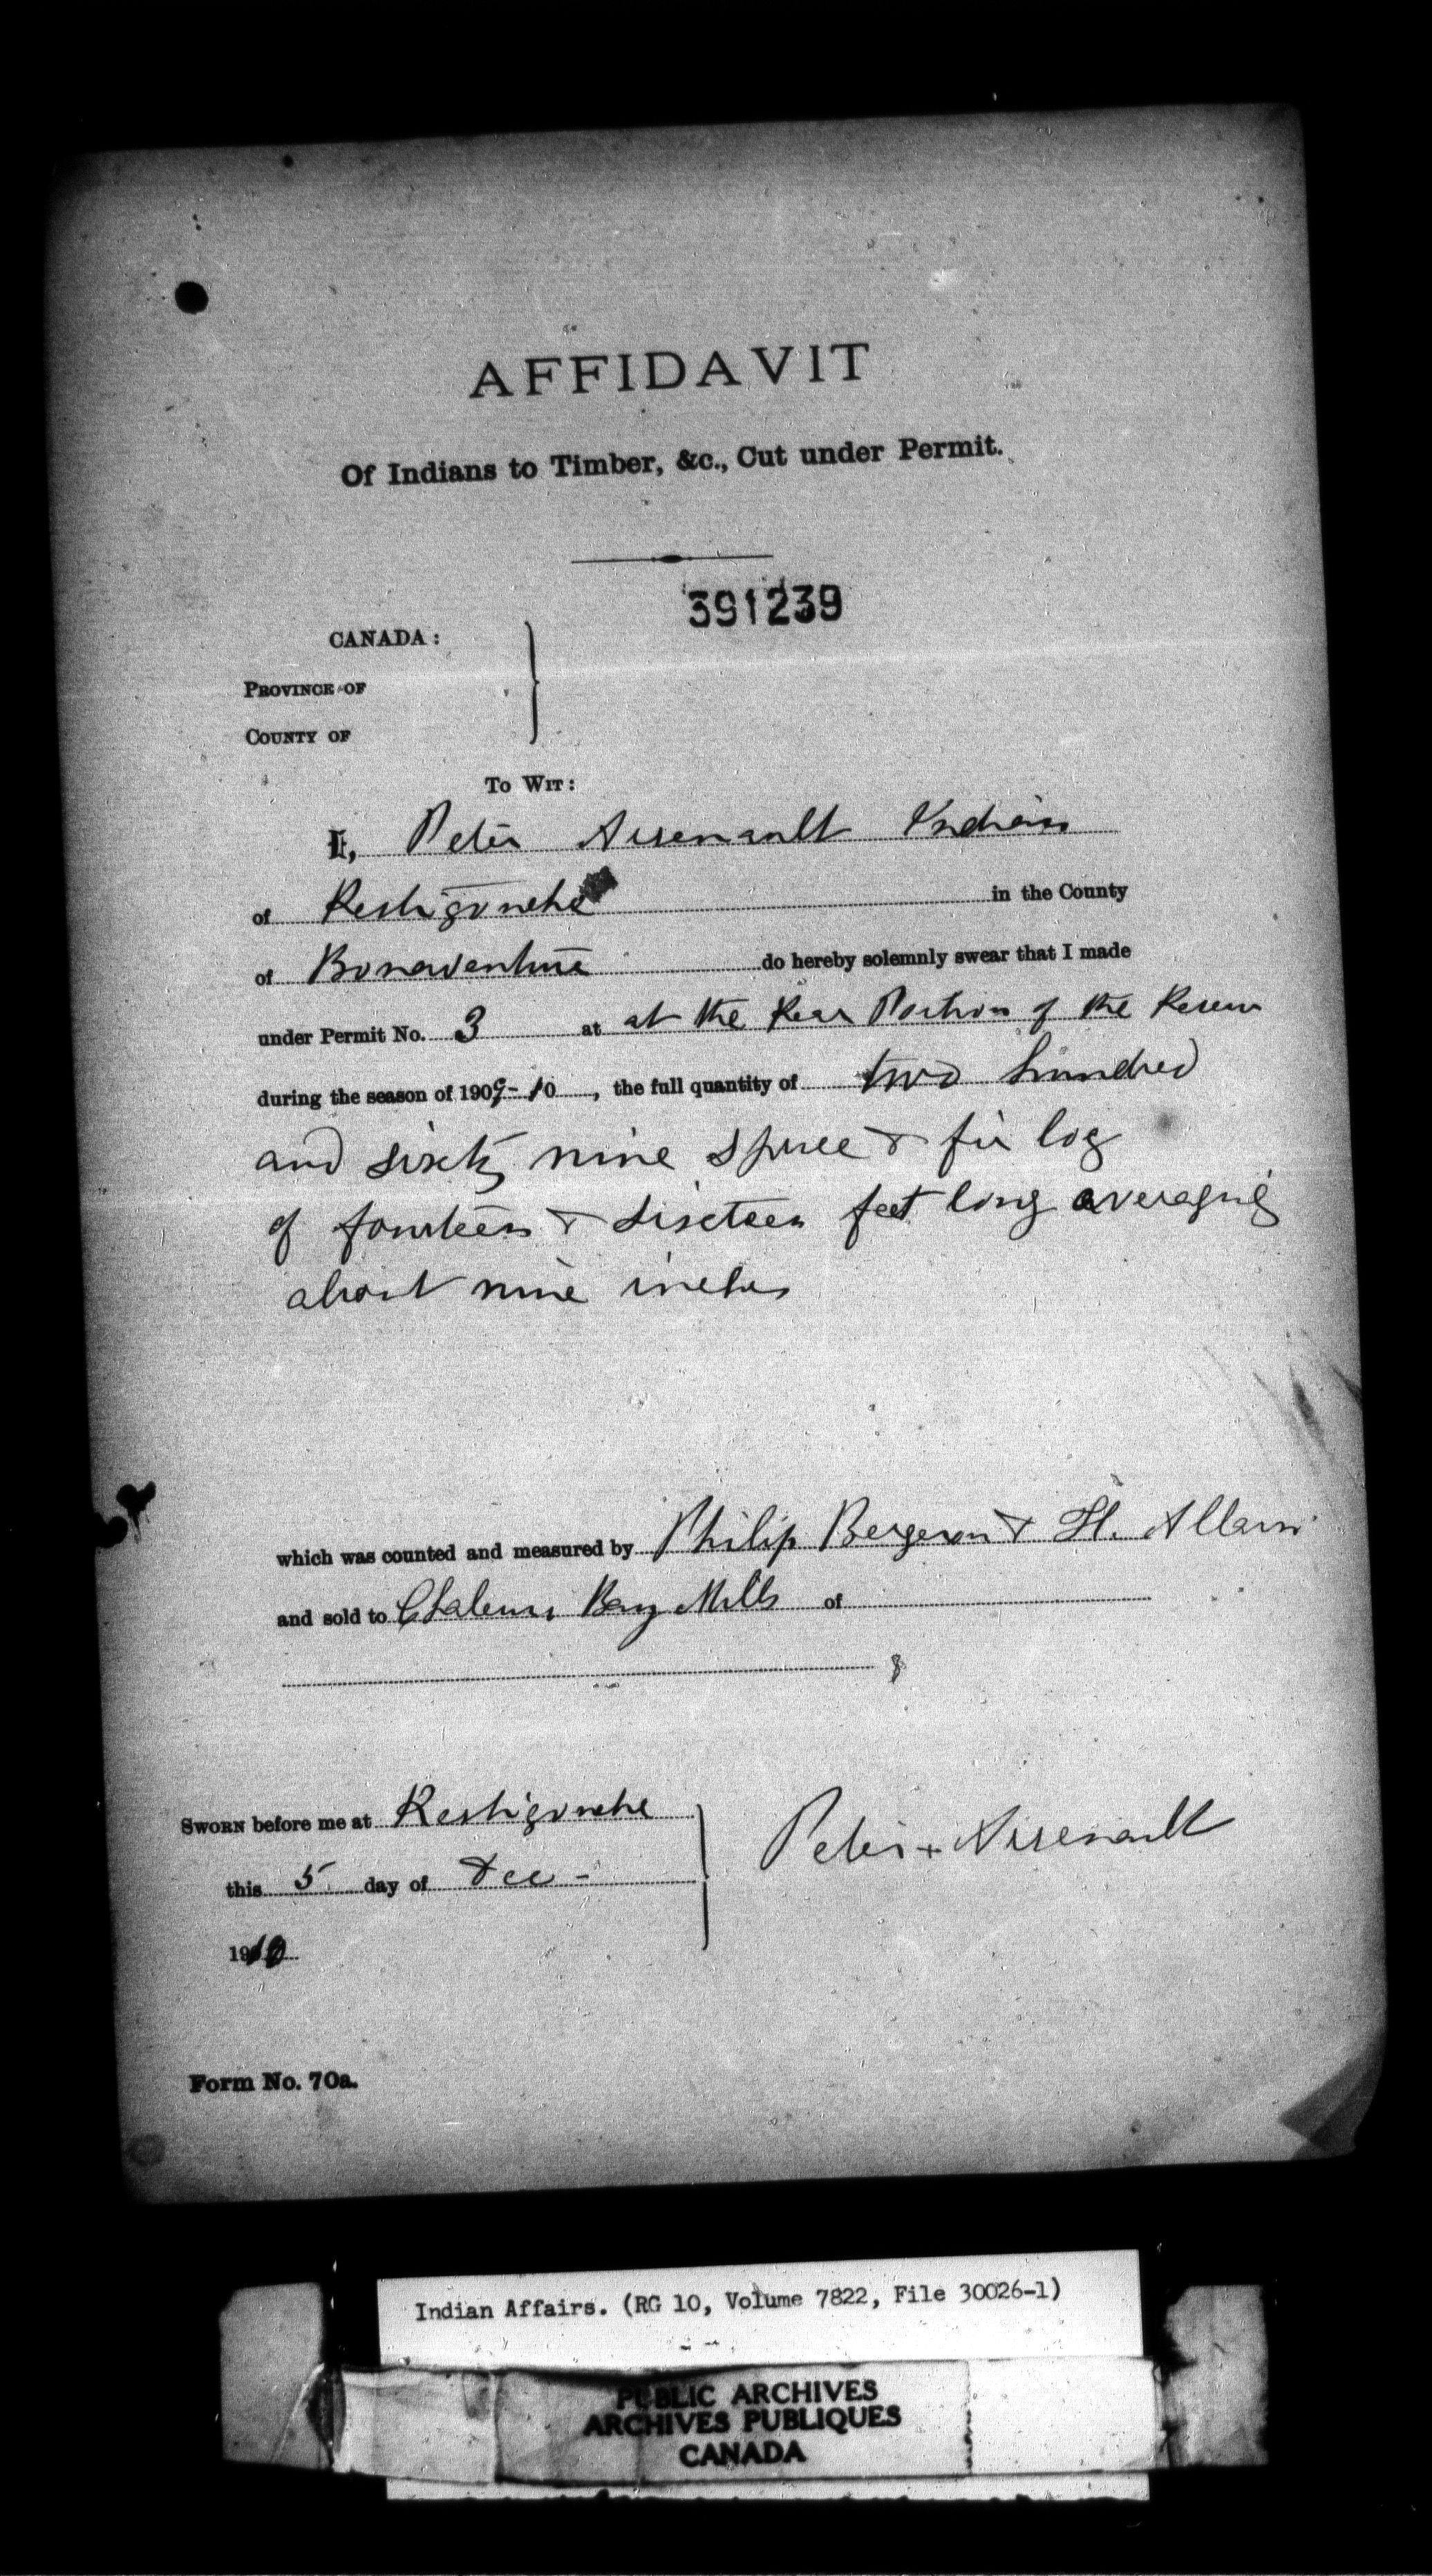 AFFIDAVIT
Of Indians to Timber, &c., Cut under Permit.
391239
CANADA:
PROVINCE OF
COUNTY OF
TO WIT:
I, Peter Arsenault Indian
of Restigouche in the County
of Bonaventure do hereby solemnly swear that I made
under Permit No. 3 at at the Rear Portion of the Reserve
during the season of 1909-10, the full quantity of two hundred
and sixty nine spruce & fir log
of fourteen & sixteen feet long averaging
about nine inches
which was counted and measured by Philip Bergeron & H. Allard
and sold to Chaleurs Bay Mills of
SWORN before me at Restigouche
this 5 day of Dec -
1910
Peter + Arsenault
Form No. 70a.
Indian Affairs. (RG 10, Volume 7822, File 30026-1)
PUBLIC ARCHIVES
ARCHIVES PUBLIQUES
CANADA